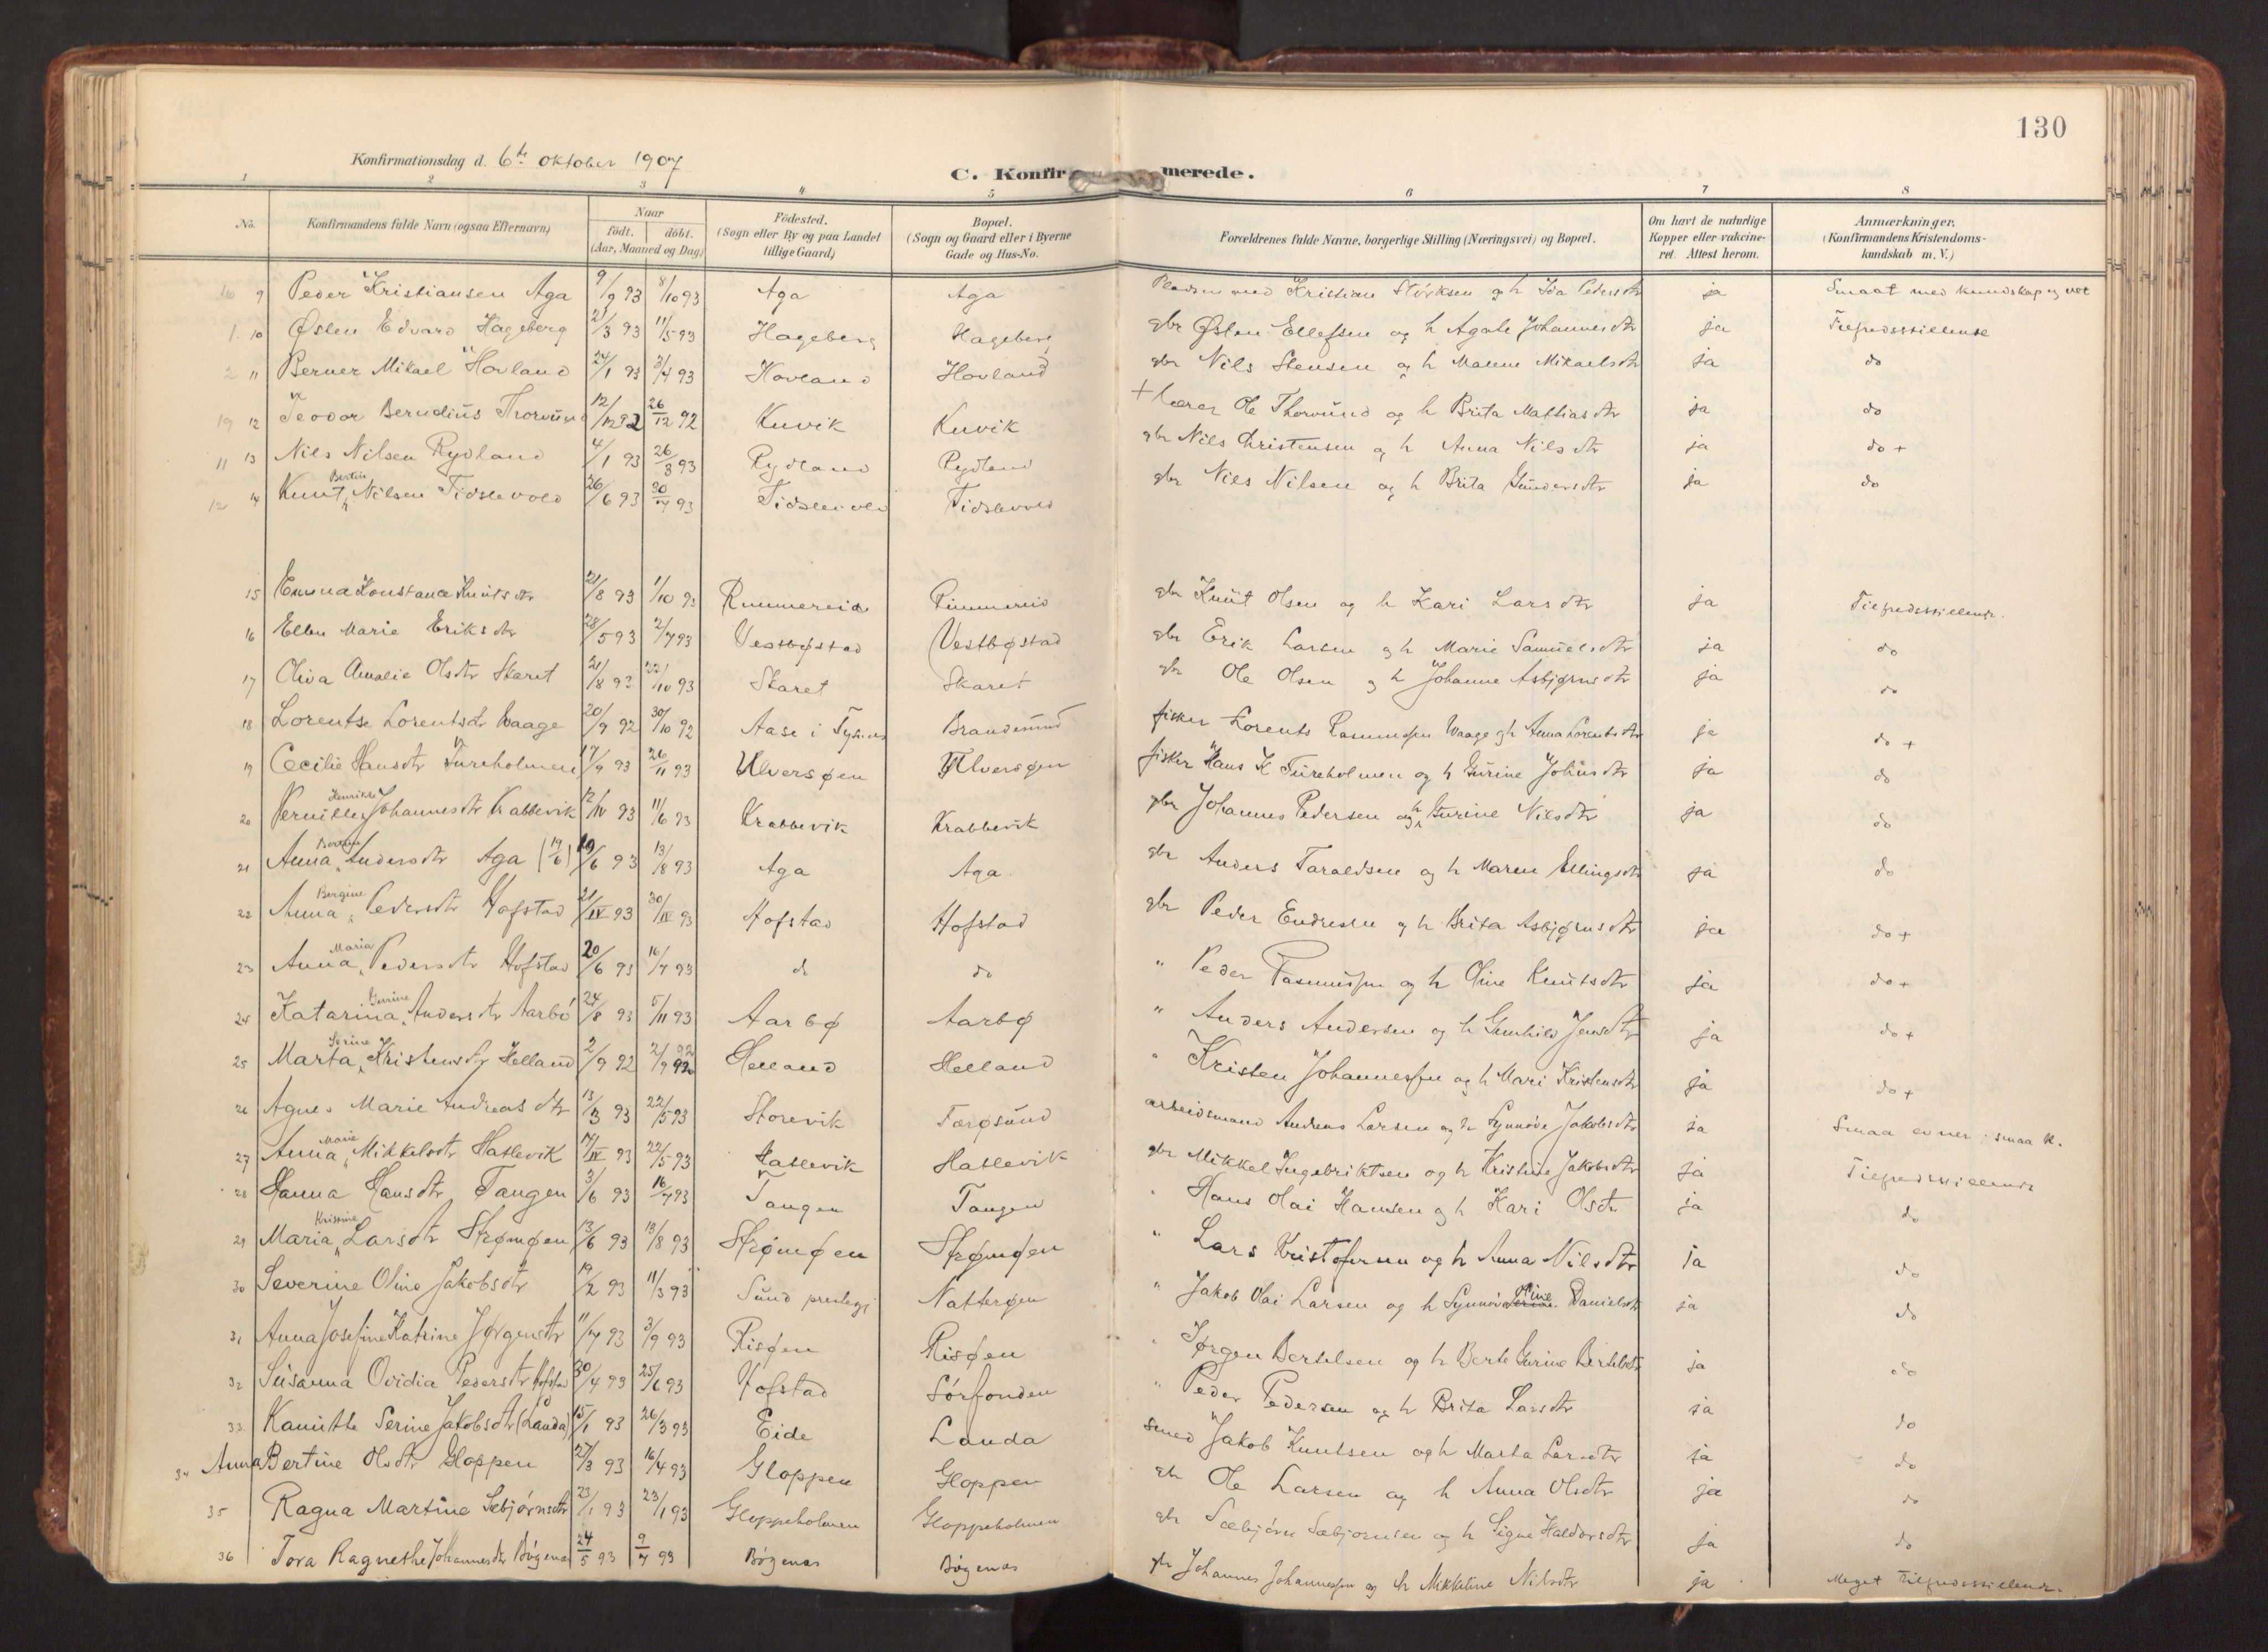 130
Konfirmationsdag d. 6te Oktober 1907
C. Konfirmerede.
1 2 3 4 5 6 7 8
No. Konfirmandens fulde Navn (ogsaa Efternavn) Naar født. døbt. (Aar, Maaned og Dag) Födested. (Sogn eller By og paa Landet tillige Gaard) Bopæl. (Sogn og Gaard eller i Byerne Gade og Hus-No. Forældrenes fulde Navne, borgerlige Stilling (Næringsvei) og Bopæl. Om havt de naturlige Kopper eller vakcineret. Attest herom. Anmærkninger, (Konfirmandens Kristendomskundskab m. V.)
9 Peder Kristiansen Aga 9/9 93 8/10 93 Aga Aga Kristian Størksen og h Ida Pedersdtr ja Smaat med kundskap og
1. 10 Østen Edvard Hageberg 21/3 93 11/5 93 Hageberg Hageberg gbr Østen Ellefsen og h Agate Johannesdtr ja Tilfredsstillende
2 11 Berner Mikael Hovland 24/1 93 3/4 93 Hovland Hovland gbr Nils Stensen og h Malene Mikaelsdtr ja do
19 12 Teodor Berndius Thorvund 12/12 92 26/12 92 Kuvik Kuvik + Lærer Ole Thorvund og h Brita Mattiasdtr ja do
11 13 Nils Nilsen Rydland 4/1 93 26/3 93 Rydland Rydland gbr Nils Christensen og h Anna Nilsdtr ja do +
12 14 Knut Bertin Nilsen Tidslevold 26/6 93 30/7 93 Tidslevold Tidslevold gbr Nils Nilsen og h Brita Gundersdtr ja do
15 Emma Konstance Knutsdtr 21/8 93 1/10 93 Rimmereid Rimmereid gbr Knut Olsen og h Kari Larsdtr ja Tilfredsstillende.
16 Ellen Marie Eriksdtr 28/5 93 2/7 93 Vestbøstad Vestbøstad gbr Erik Larsen og h Marie Samuelsdtr ja do
17 Oliva Amalie Olsdtr Skaret 21/8 93 22/10 93 Skaret Skaret gbr Ole Olsen og h Johanne Asbjørnsdtr ja do
18 Lorentse Lorentsdtr Waage 20/9 92 30/10 92 Aase i Tysnes Brandesund fisker Lorents Rasmussen Waage og h Anna Lorentsdtr ja do +
19 Cecilie Hansdtr Tureholmen 17/9 93 26/11 93 Ulversøen Ulversøen fisker Hans K Tureholmen og h Gurine Johnsdtr ja do
20 Pernille Henrikke Johannesdtr Krabbevik 12/IV 93 11/6 93 Krabbevik Krabbevik gbr Johannes Pedersen og h Gurine Nilsdtr ja do
21 Anna Bertine Andersdtr Aga (19/6) 19/6 93 13/8 93 Aga Aga gbr Anders Taraldsen og h Maren Ellingsdtr ja do
22 Anna Bergine Pedersdtr Hofstad 21/IV 93 30/IV 93 Hofstad Hofstad gbr Peder Endresen og h Brita Asbjørnsdtr ja do +
23 Anna Maria Pedersdtr Hofstad 20/6 93 16/7 93 do do " Peder Rasmussen og h Oline Knutsdtr ja do +
24 Katarina Gurine Andersdtr Aarbø 24/8 93 5/11 93 Aarbø Aarbø " Anders Andersen og h Gunhild Jensdtr ja do +
25 Marta Serine Kristensdtr Helland 2/9 92 2/9 92 Helland Helland " Kristen Johannessen og h Mari Kristensdtr ja do +
26 Agnes Marie Andreasdtr 13/3 93 22/5 93 Storevik Færøsund arbeidsmand Andreas Larsen og h Synnøve Jakobsdtr ja Smaa evner; smaa k.
27 Anna Marie Mikkelsdtr Hatlevik 17/IV 93 22/5 93 Hatlevik Hatlevik gbr Mikkel Ingebriktsen og h Kristine Jakobsdtr ja Tilfredsstillende
28 Hanna Hansdtr Tangen 3/6 93 16/7 93 Tangen Tangen " Hans Olai Hansen og h Kari Olsdtr ja do
29 Maria Kristine Larsdtr Strømøen 13/6 93 13/8 93 Strømøen Strømøen " Lars Kristofersen og h Anna Nilsdtr ja do
30 Severine Oline Jakobsdtr 19/2 93 11/3 93 Sund prestegj Nattersøen " Jakob Olai Larsen og h Synnøva Oline Danielsdtr ja do
31 Anna Josefine Katrine Jørgensdtr 11/7 93 3/9 93 Risøen Risøen " Jørgen Bertelsen og h Berte Gurine Bertelsdtr ja do
32 Susanna Ovidia Pedersdtr Hofstad 30/4 93 25/6 93 Hofstad Sørfonden " Peder Pedersen og h Brita Larsdtr ja do
33. Kanutte Serine Jakobsdtr (Landa) 15/1 93 26/3 93 Eide Landa smed Jakob Knutsen og h Marta Larsdtr ja do
34 Anna Bertine Olsdtr Gloppen 27/3 93 16/4 93 Gloppen Gloppen gbr Ole Larsen og h Anna Olsdtr ja do
35 Ragna Martine Sæbjørnsdtr 23/1 93 23/1 93 Gloppeholmen Gloppeholmen gbr Sæbjørn Sæbjørnsen og h Signe Haldorsdtr ja do
36 Tora Ragnethe Johannesdtr Bøgenæs 24/5 93 9/7 93 Bøgenæs Bøgenæs gbr Johannes Johannessen og h Mikkeline Nilsdtr ja Meget Tilfredsstillende.